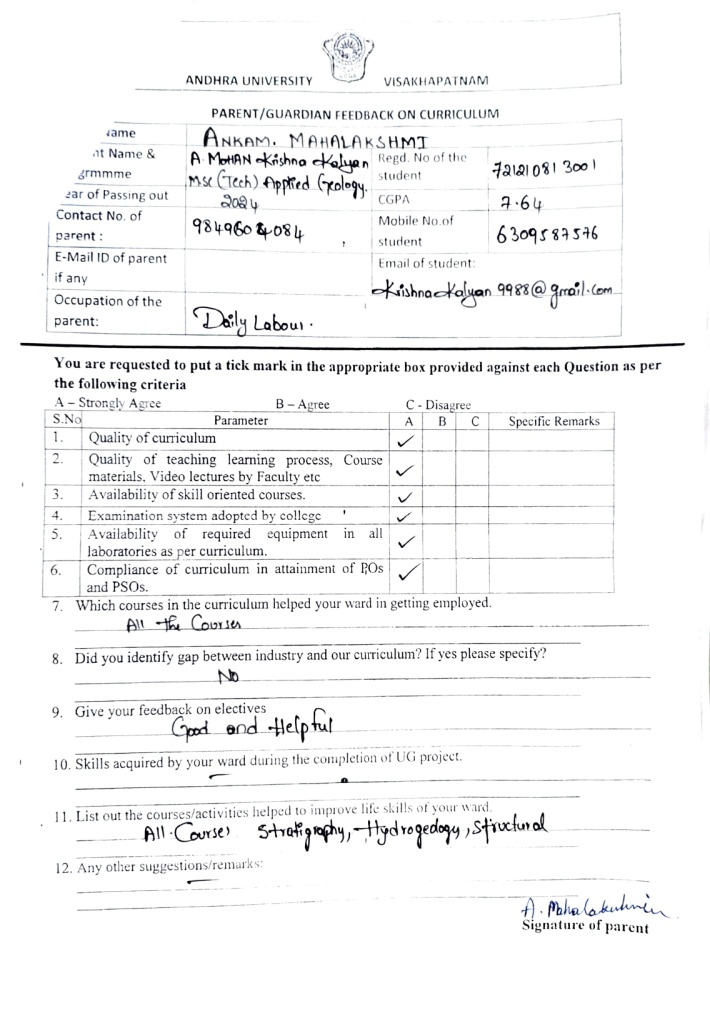 ANDHRA UNIVERSITY VISAKHAPATNAM
PARENT/GUARDIAN FEEDBACK ON CURRICULUM
ame ANKAM. MAHALAKSHMI
nt Name & A. MOHAN Krishna Kalyan
grmmme Msc (Tech) Applied Geology.
Regd. No of the student 721210813001
ear of Passing out 2024
CGPA 7.64
Contact No. of parent : 9849604084
Mobile No.of student 6309587576
E-Mail ID of parent if any
Email of student: Krishna Kalyan 9988@gmail.com
Occupation of the parent: Daily Labour.
You are requested to put a tick mark in the appropriate box provided against each Question as per
the following criteria
A – Strongly Agree B – Agree C - Disagree
S.No Parameter A B C Specific Remarks
1. Quality of curriculum ✓
2. Quality of teaching learning process, Course
materials, Video lectures by Faculty etc ✓
3. Availability of skill oriented courses. ✓
4. Examination system adopted by college ✓
5. Availability of required equipment in all
laboratories as per curriculum. ✓
6. Compliance of curriculum in attainment of POs
and PSOs. ✓
7. Which courses in the curriculum helped your ward in getting employed.
All the Courses
8. Did you identify gap between industry and our curriculum? If yes please specify?
No
9. Give your feedback on electives
Good and Helpful
10. Skills acquired by your ward during the completion of UG project.
11. List out the courses/activities helped to improve life skills of your ward.
All Courses Stratigraphy, Hydrogeology, Structural
12. Any other suggestions/remarks:
A. Mahalakshmi
Signature of parent